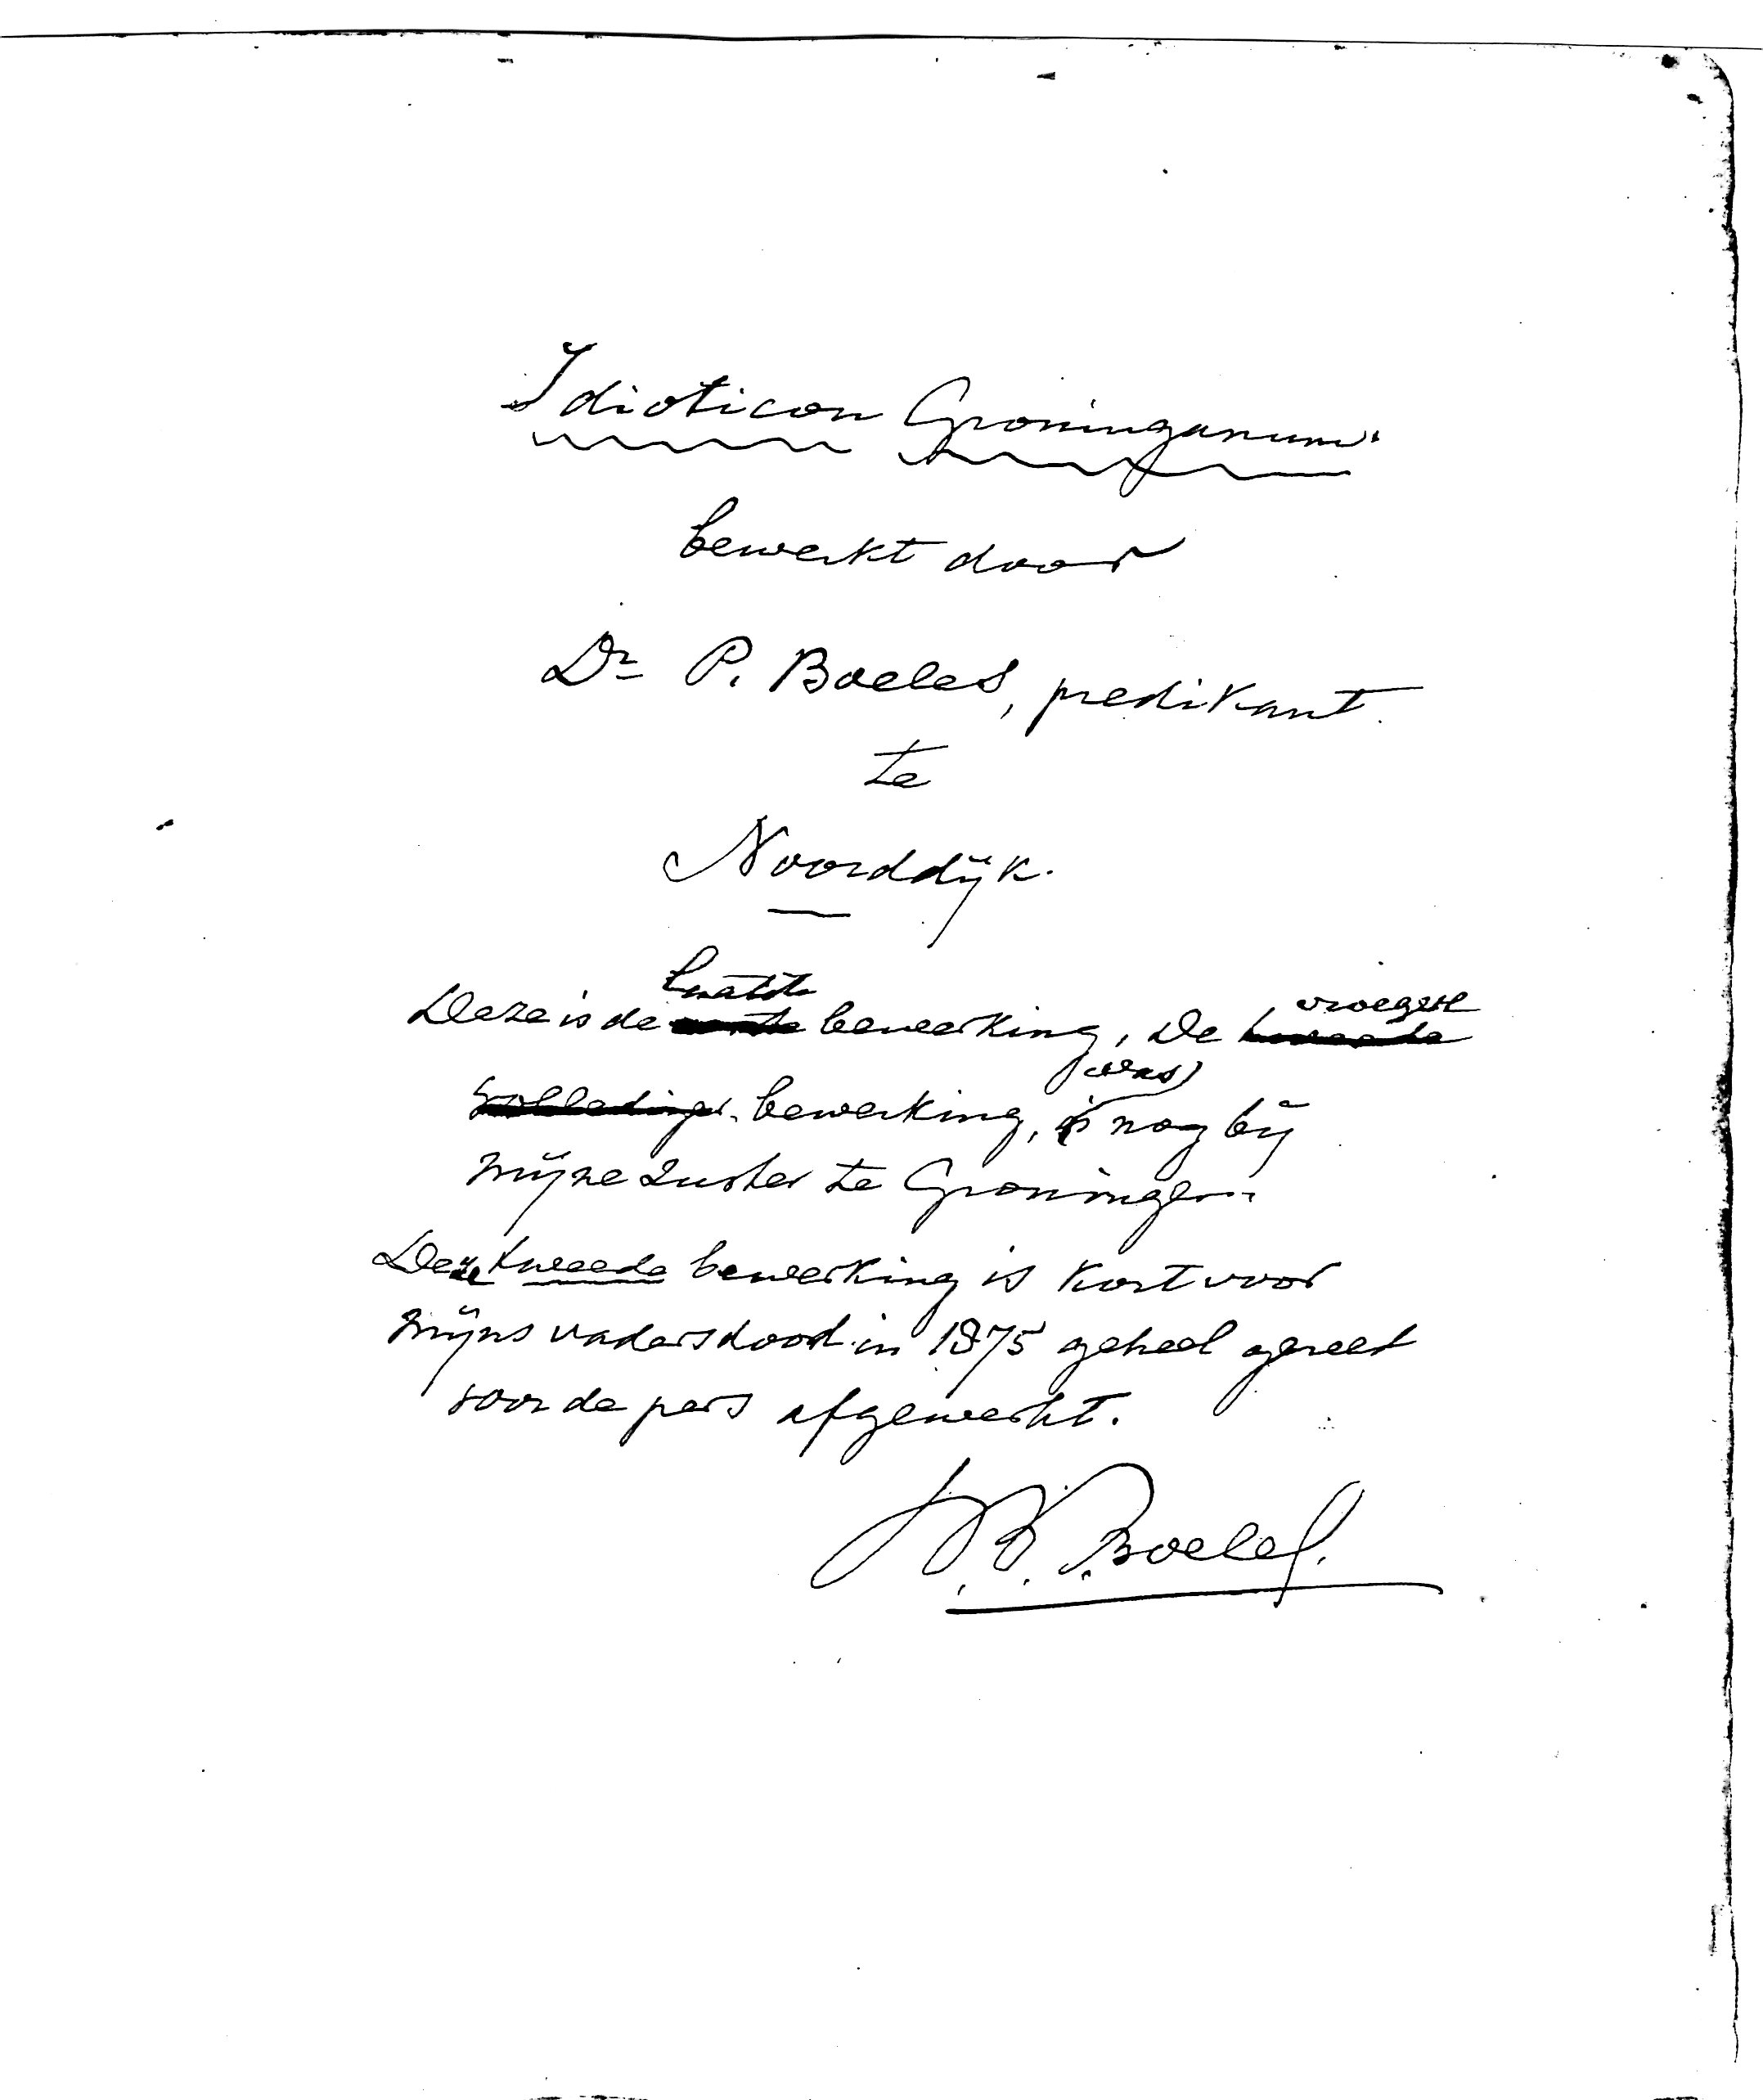 Idioticon Groninganum.
bewerkt door
Dr P. Boeles, predikant
te
Noorddijk.
laatste
Deze is de eerste bewerking. De tweede
vroegere
volledige bewerking, is nog bij
(was)
mijne zuster te Groningen.
Deze tweede bewerking is kort voor
mijns vaders dood in 1875 geheel gereed
voor de pers afgewerkt.
Boeles.